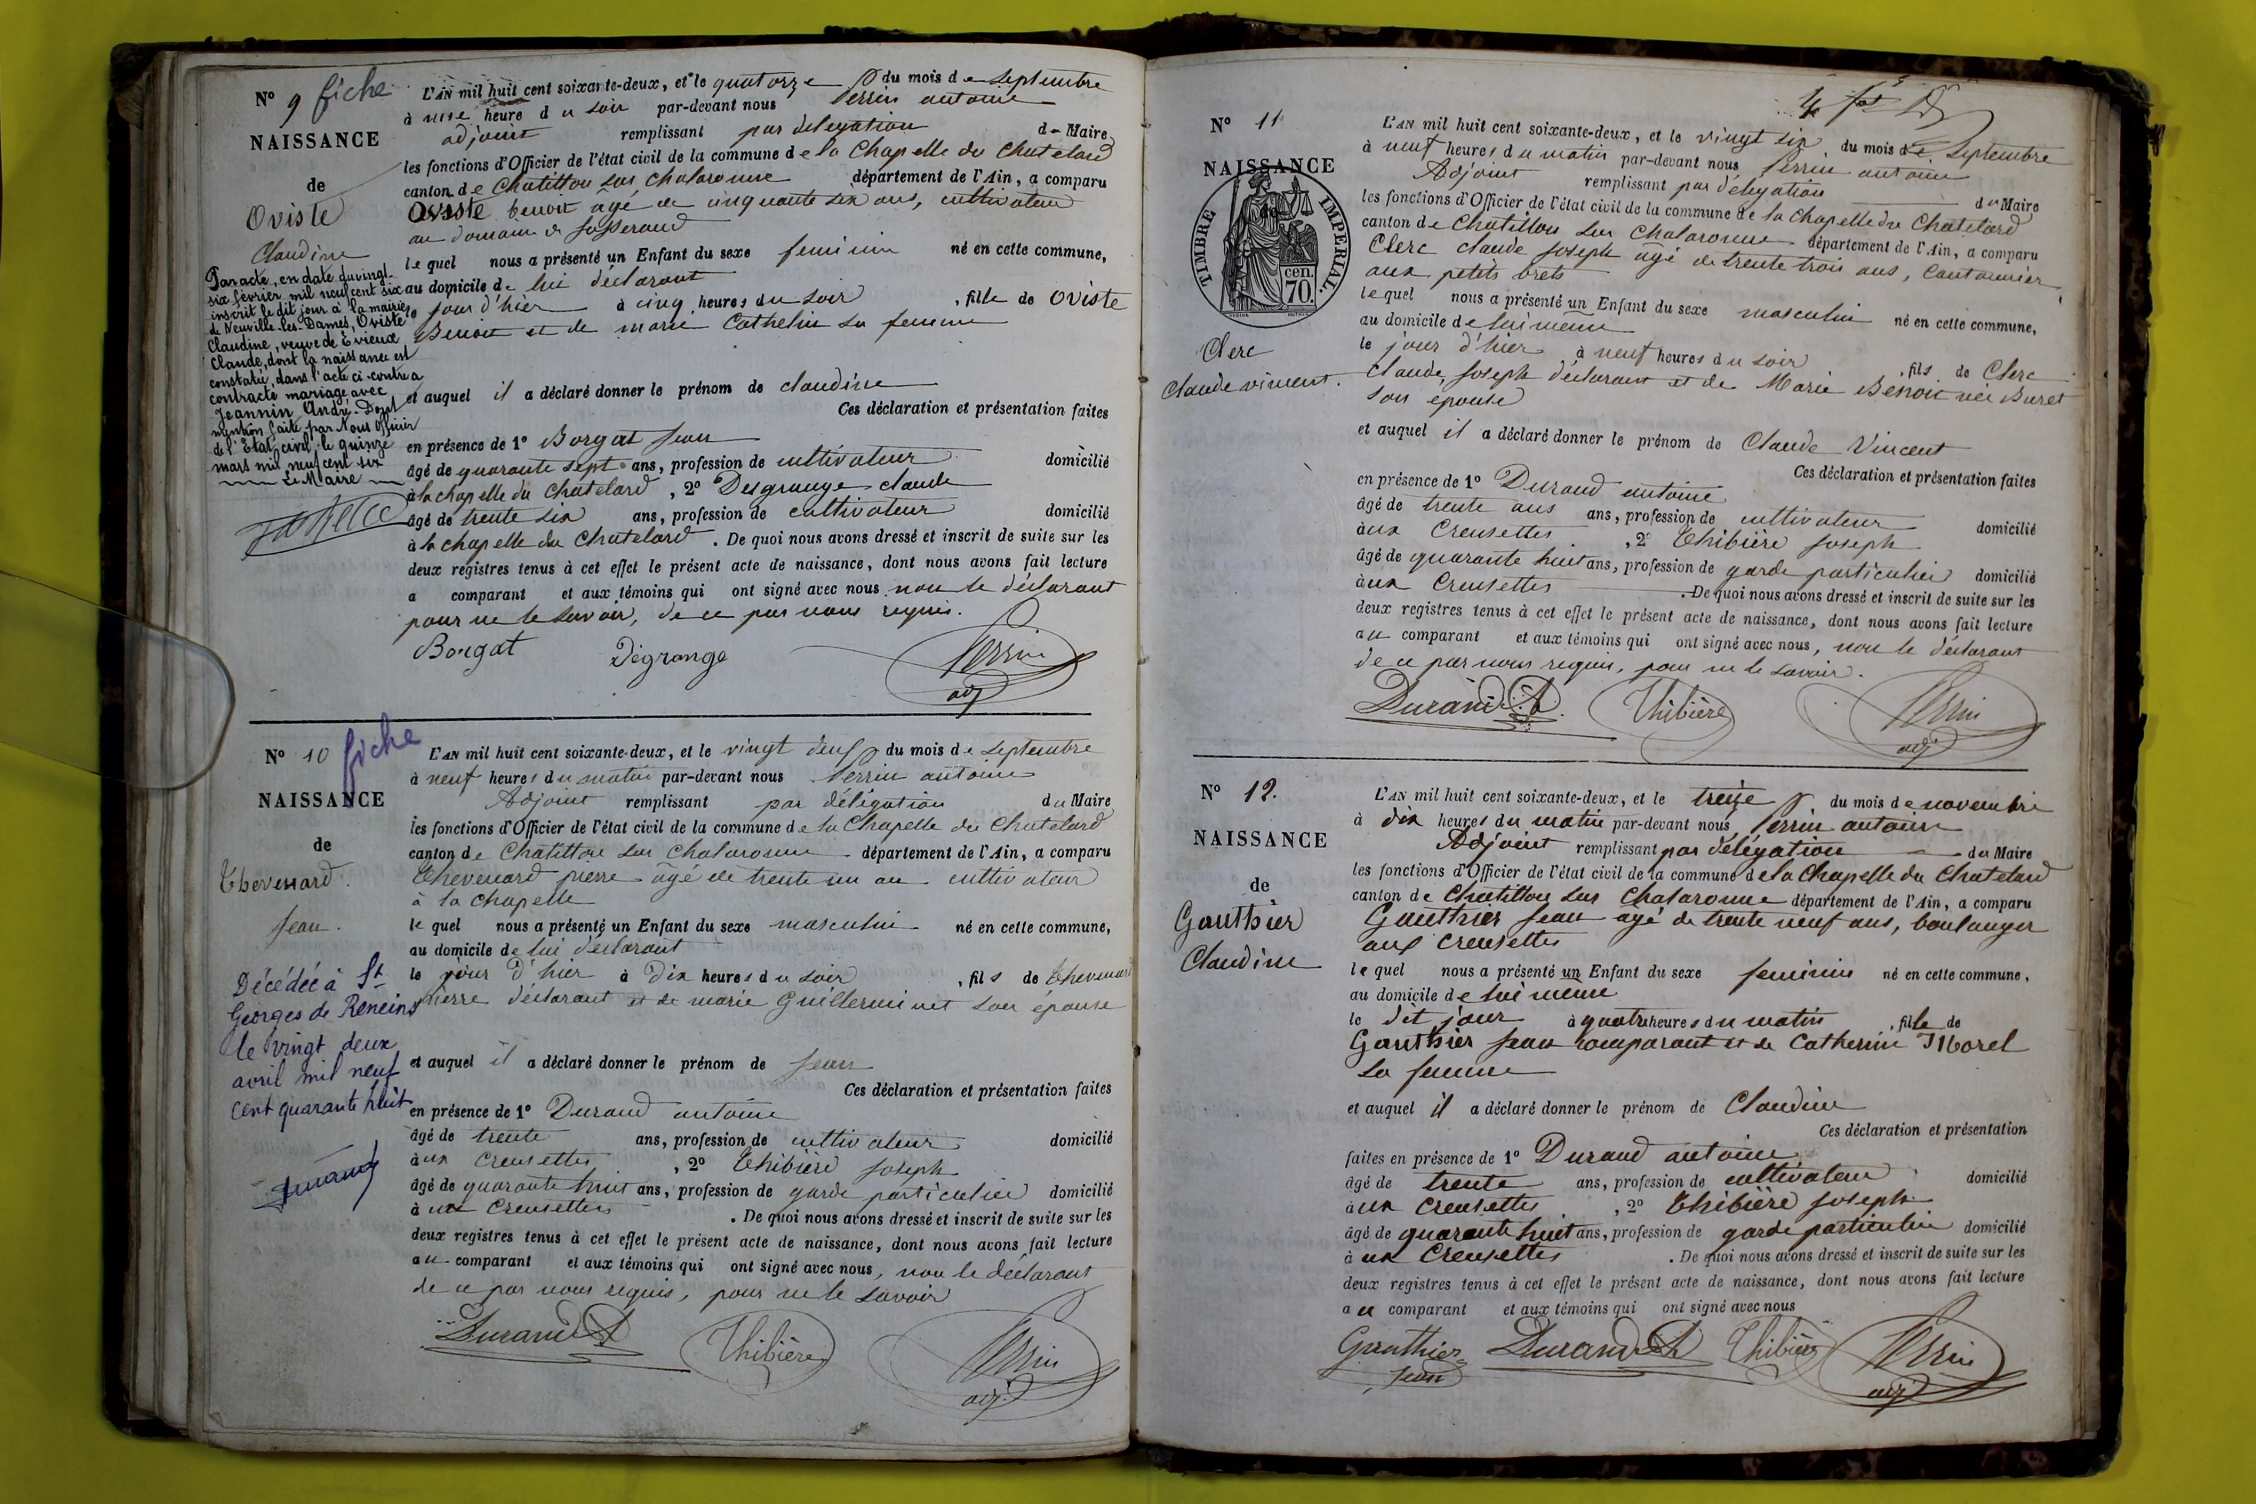 Nº 9 fiche
NAISSANCE
de
Oviste
Claudine
Par acte, en date du vingt-
six février mil neuf cent six
inscrit le dit jour à la mairie
de Neuville-les-Dames, Oviste
Claudine, veuve de Evieux
Claude, dont la naissance est
constatée dans l'acte ci-contre a
contracté mariage avec
Jeannin André. Dont
mention faite par Nous Officier
de l'Etat civil le quinze
mars mil neuf cent six
Le Maire
L'AN mil huit cent soixante-deux, et le quatorze du mois de septembre
à une heure du soir par-devant nous Perrin antoine
adjoint remplissant par delegation du Maire
les fonctions d'Officier de l'état civil de la commune de la Chapelle du Chatelard
canton de Chatillon sur Chalaronne département de l'Ain, a comparu
Oviste benoit âgé de cinquante six ans, cultivateur
au domaine de
lequel nous a présenté un Enfant du sexe feminin né en cette commune,
au domicile de lui déclarant
le jour d'hier à cinq heures du soir , fille de Oviste
Benoit et de marie Cathelin sa femme
et auquel il a déclaré donner le prénom de claudine
Ces déclaration et présentation faites
en présence de 1º Borgat Jean
âgé de quarante sept ans, profession de cultivateur domicilié
à la chapelle du Chatelard , 2º Desgrange claude
âgé de trente six ans, profession de cultivateur domicilié
à la chapelle du Chatelard . De quoi nous avons dressé et inscrit de suite sur les
deux registres tenus à cet effet le présent acte de naissance, dont nous avons fait lecture
a comparant et aux témoins qui ont signé avec nous non le déclarant
pour ne le savoir, de ce par nous requis.
Borgat Dégrange Perrin
adj
Nº 10 fiche
NAISSANCE
de
Thevenard
Jean.
Décédé à St
Georges de Reneins
le vingt deux
avril mil neuf
cent quarante huit
L'AN mil huit cent soixante-deux, et le vingt deux du mois de septembre
à neuf heures du matin par-devant nous Perrin antoine
Adjoint remplissant par délégation du Maire
les fonctions d'Officier de l'état civil de la commune de la Chapelle du Chatelard
canton de Chatillon sur Chalaronne département de l'Ain, a comparu
Thevenard pierre agé de trente un an cultivateur
à la chapelle
lequel nous a présenté un Enfant du sexe masculin né en cette commune,
au domicile de lui déclarant
le jour d'hier à dix heures du soir , fils de Thevenard
pierre déclarant et de marie Guillerminet son épouse
et auquel il a déclaré donner le prénom de Jean
Ces déclaration et présentation faites
en présence de 1º Durand antoine
âgé de trente ans, profession de cultivateur domicilié
aux Creusettes , 2º Thibière Joseph
âgé de quarante huit ans, profession de garde particulier domicilié
à ux Creusettes . De quoi nous avons dressé et inscrit de suite sur les
deux registres tenus à cet effet le présent acte de naissance, dont nous avons fait lecture
au comparant et aux témoins qui ont signé avec nous, non le déclarant
de ce par nous requis, pour ne le savoir
Durand A Thibière Perrin
adj.
Nº 11
NAISSANCE
de
TIMBRE IMPERIAL.
cen.
70.
Clerc
Claude vincent.
L'AN mil huit cent soixante-deux, et le vingt six du mois de Septembre
à neuf heures du matin par-devant nous Perrin antoine
Adjoint remplissant par délégation du Maire
les fonctions d'Officier de l'état civil de la commune de la Chapelle du Chatelard
canton de Chatillon sur Chalaronne département de l'Ain, a comparu
Clerc claude Joseph agé de trente trois ans, Cantonnier
aux petits brets
lequel nous a présenté un Enfant du sexe masculin né en cette commune,
au domicile de lui même
le jour d'hier à neuf heures du soir , fils de Clerc
Claude, Joseph déclarant et de Marie Benoit née Buret
son épouse
et auquel il a déclaré donner le prénom de Claude Vincent
Ces déclaration et présentation faites
en présence de 1º Durand antoine
âgé de trente ans ans, profession de cultivateur domicilié
aux Creusettes , 2º Thibière Joseph
âgé de quarante huit ans, profession de garde particulier domicilié
aux Creusettes . De quoi nous avons dressé et inscrit de suite sur les
deux registres tenus à cet effet le présent acte de naissance, dont nous avons fait lecture
au comparant et aux témoins qui ont signé avec nous, non le déclarant
de ce par nous requis, pour ne le savoir.
Durand A Thibière Perrin
adj.
Nº 12.
NAISSANCE
de
Gauthier
Claudine
L'AN mil huit cent soixante-deux, et le treize du mois de novembre
à dix heures du matin par-devant nous Perrin antoine
Adjoint remplissant par délégation du Maire
les fonctions d'Officier de l'état civil de la commune de la Chapelle du Chatelard
canton de Chatillon sur Chalaronne département de l'Ain, a comparu
Gauthier Jean agé de trente neuf ans, boulanger
aux Creusettes
lequel nous a présenté un Enfant du sexe feminin né en cette commune,
au domicile de lui même
le dit jour à quatre heures du matin , fille de
Gauthier Jean comparant et de Catherine Morel
sa femme
et auquel il a déclaré donner le prénom de Claudine
Ces déclaration et présentation
faites en présence de 1º Durand antoine
âgé de trente ans, profession de cultivateur domicilié
aux Creusettes , 2º Thibière Joseph
âgé de quarante huit ans, profession de garde particulier domicilié
à ux Creusettes . De quoi nous avons dressé et inscrit de suite sur les
deux registres tenus à cet effet le présent acte de naissance, dont nous avons fait lecture
au comparant et aux témoins qui ont signé avec nous
Gauthier Durand A Thibière Perrin
Jean adj.